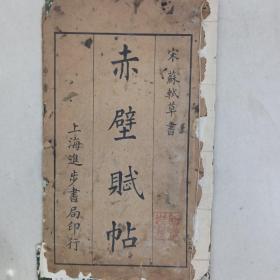 宋蘇軾草書
赤壁賦帖
上海進步書局印行